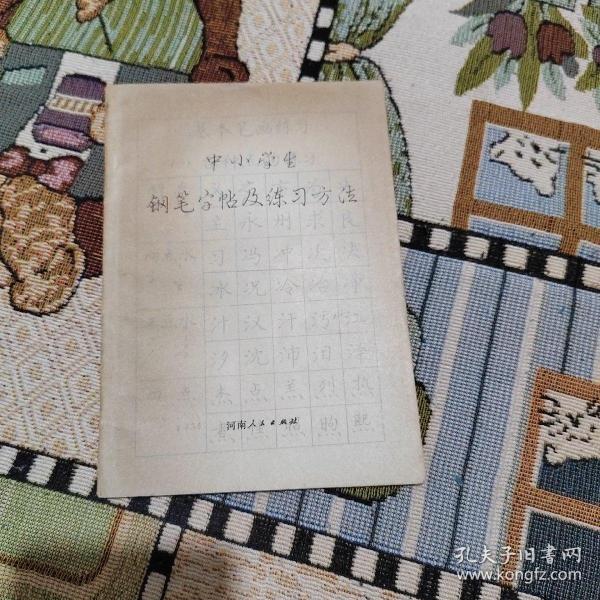 基本笔画练习
中小学生
钢笔字帖及练习方法
主永州求良
习冯冲次决
冰况冷冶净
汁汉汗污江
汐沈沛泪泽
四点 杰点羔烈热
煦熙
河南人民出版社
孔夫子旧书网
www.kongfz.com